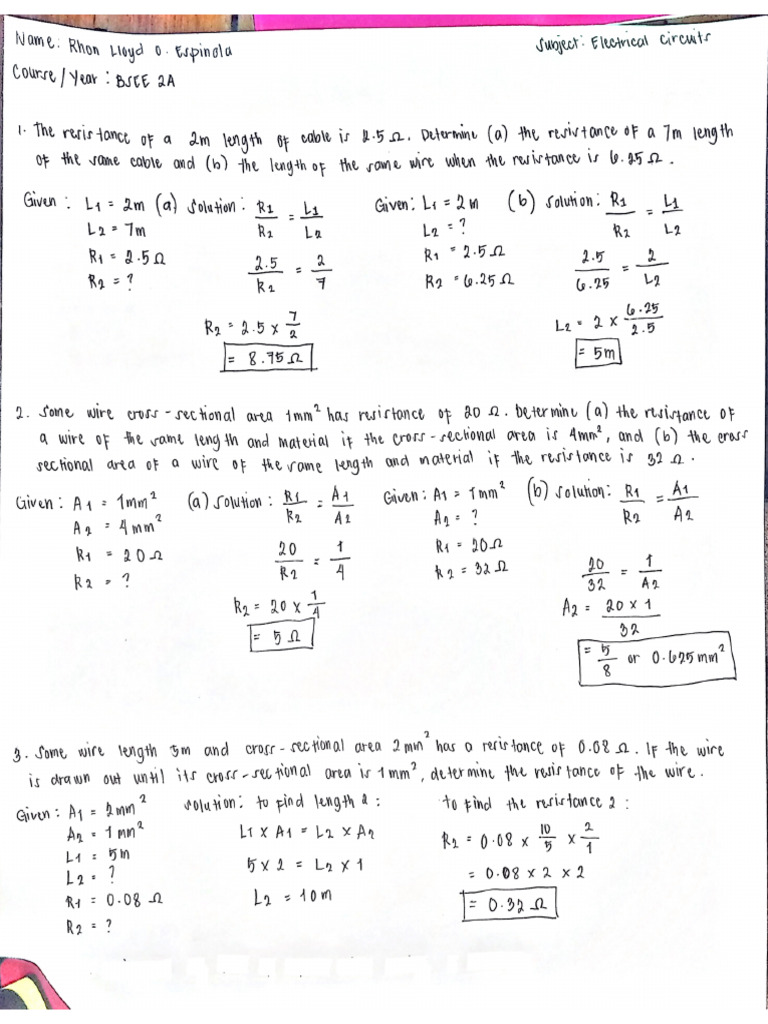 Name: Rhon Lloyd O. Espinola
Subject: Electrical Circuits
Course/Year: BSCE 2A
1. The resistance of a 2m length of cable is 2.5 Ω. Determine (a) the resistance of a 7m length
of the same cable and (b) the length of the same wire when the resistance is 6.25 Ω.
Given: L1 = 2m (a) Solution: R1/R2 = L1/L2
L2 = 7m
R1 = 2.5 Ω
R2 = ?
2.5/R2 = 2/7
R2 = 2.5 x 7/2
= 8.75 Ω
Given: L1 = 2m (b) Solution: R1/R2 = L1/L2
L2 = ?
R1 = 2.5 Ω
R2 = 6.25 Ω
2.5/6.25 = 2/L2
L2 = 2 x 6.25/2.5
= 5m
2. Some wire cross-sectional area 1mm² has resistance of 20 Ω. Determine (a) the resistance of
a wire of the same length and material if the cross-sectional area is 4mm², and (b) the cross
sectional area of a wire of the same length and material if the resistance is 32 Ω.
Given: A1 = 1mm² (a) Solution: R1/R2 = A1/A2
A2 = 4mm²
R1 = 20 Ω
R2 = ?
20/R2 = 1/4
R2 = 20 x 1/4
= 5 Ω
Given: A1 = 1mm² (b) Solution: R1/R2 = A1/A2
A2 = ?
R1 = 20 Ω
R2 = 32 Ω
20/32 = 1/A2
A2 = 20 x 1/32
= 5/8 or 0.625 mm²
3. Some wire length 5m and cross-sectional area 2mm² has a resistance of 0.08 Ω. If the wire
is drawn out until its cross-sectional area is 1mm², determine the resistance of the wire.
Given: A1 = 2mm²
A2 = 1mm²
L1 = 5m
L2 = ?
R1 = 0.08 Ω
R2 = ?
Solution: to find length 2:
L1 x A1 = L2 x A2
5 x 2 = L2 x 1
L2 = 10m
to find the resistance 2:
R2 = 0.08 x 10/5 x 2/1
= 0.08 x 2 x 2
= 0.32 Ω